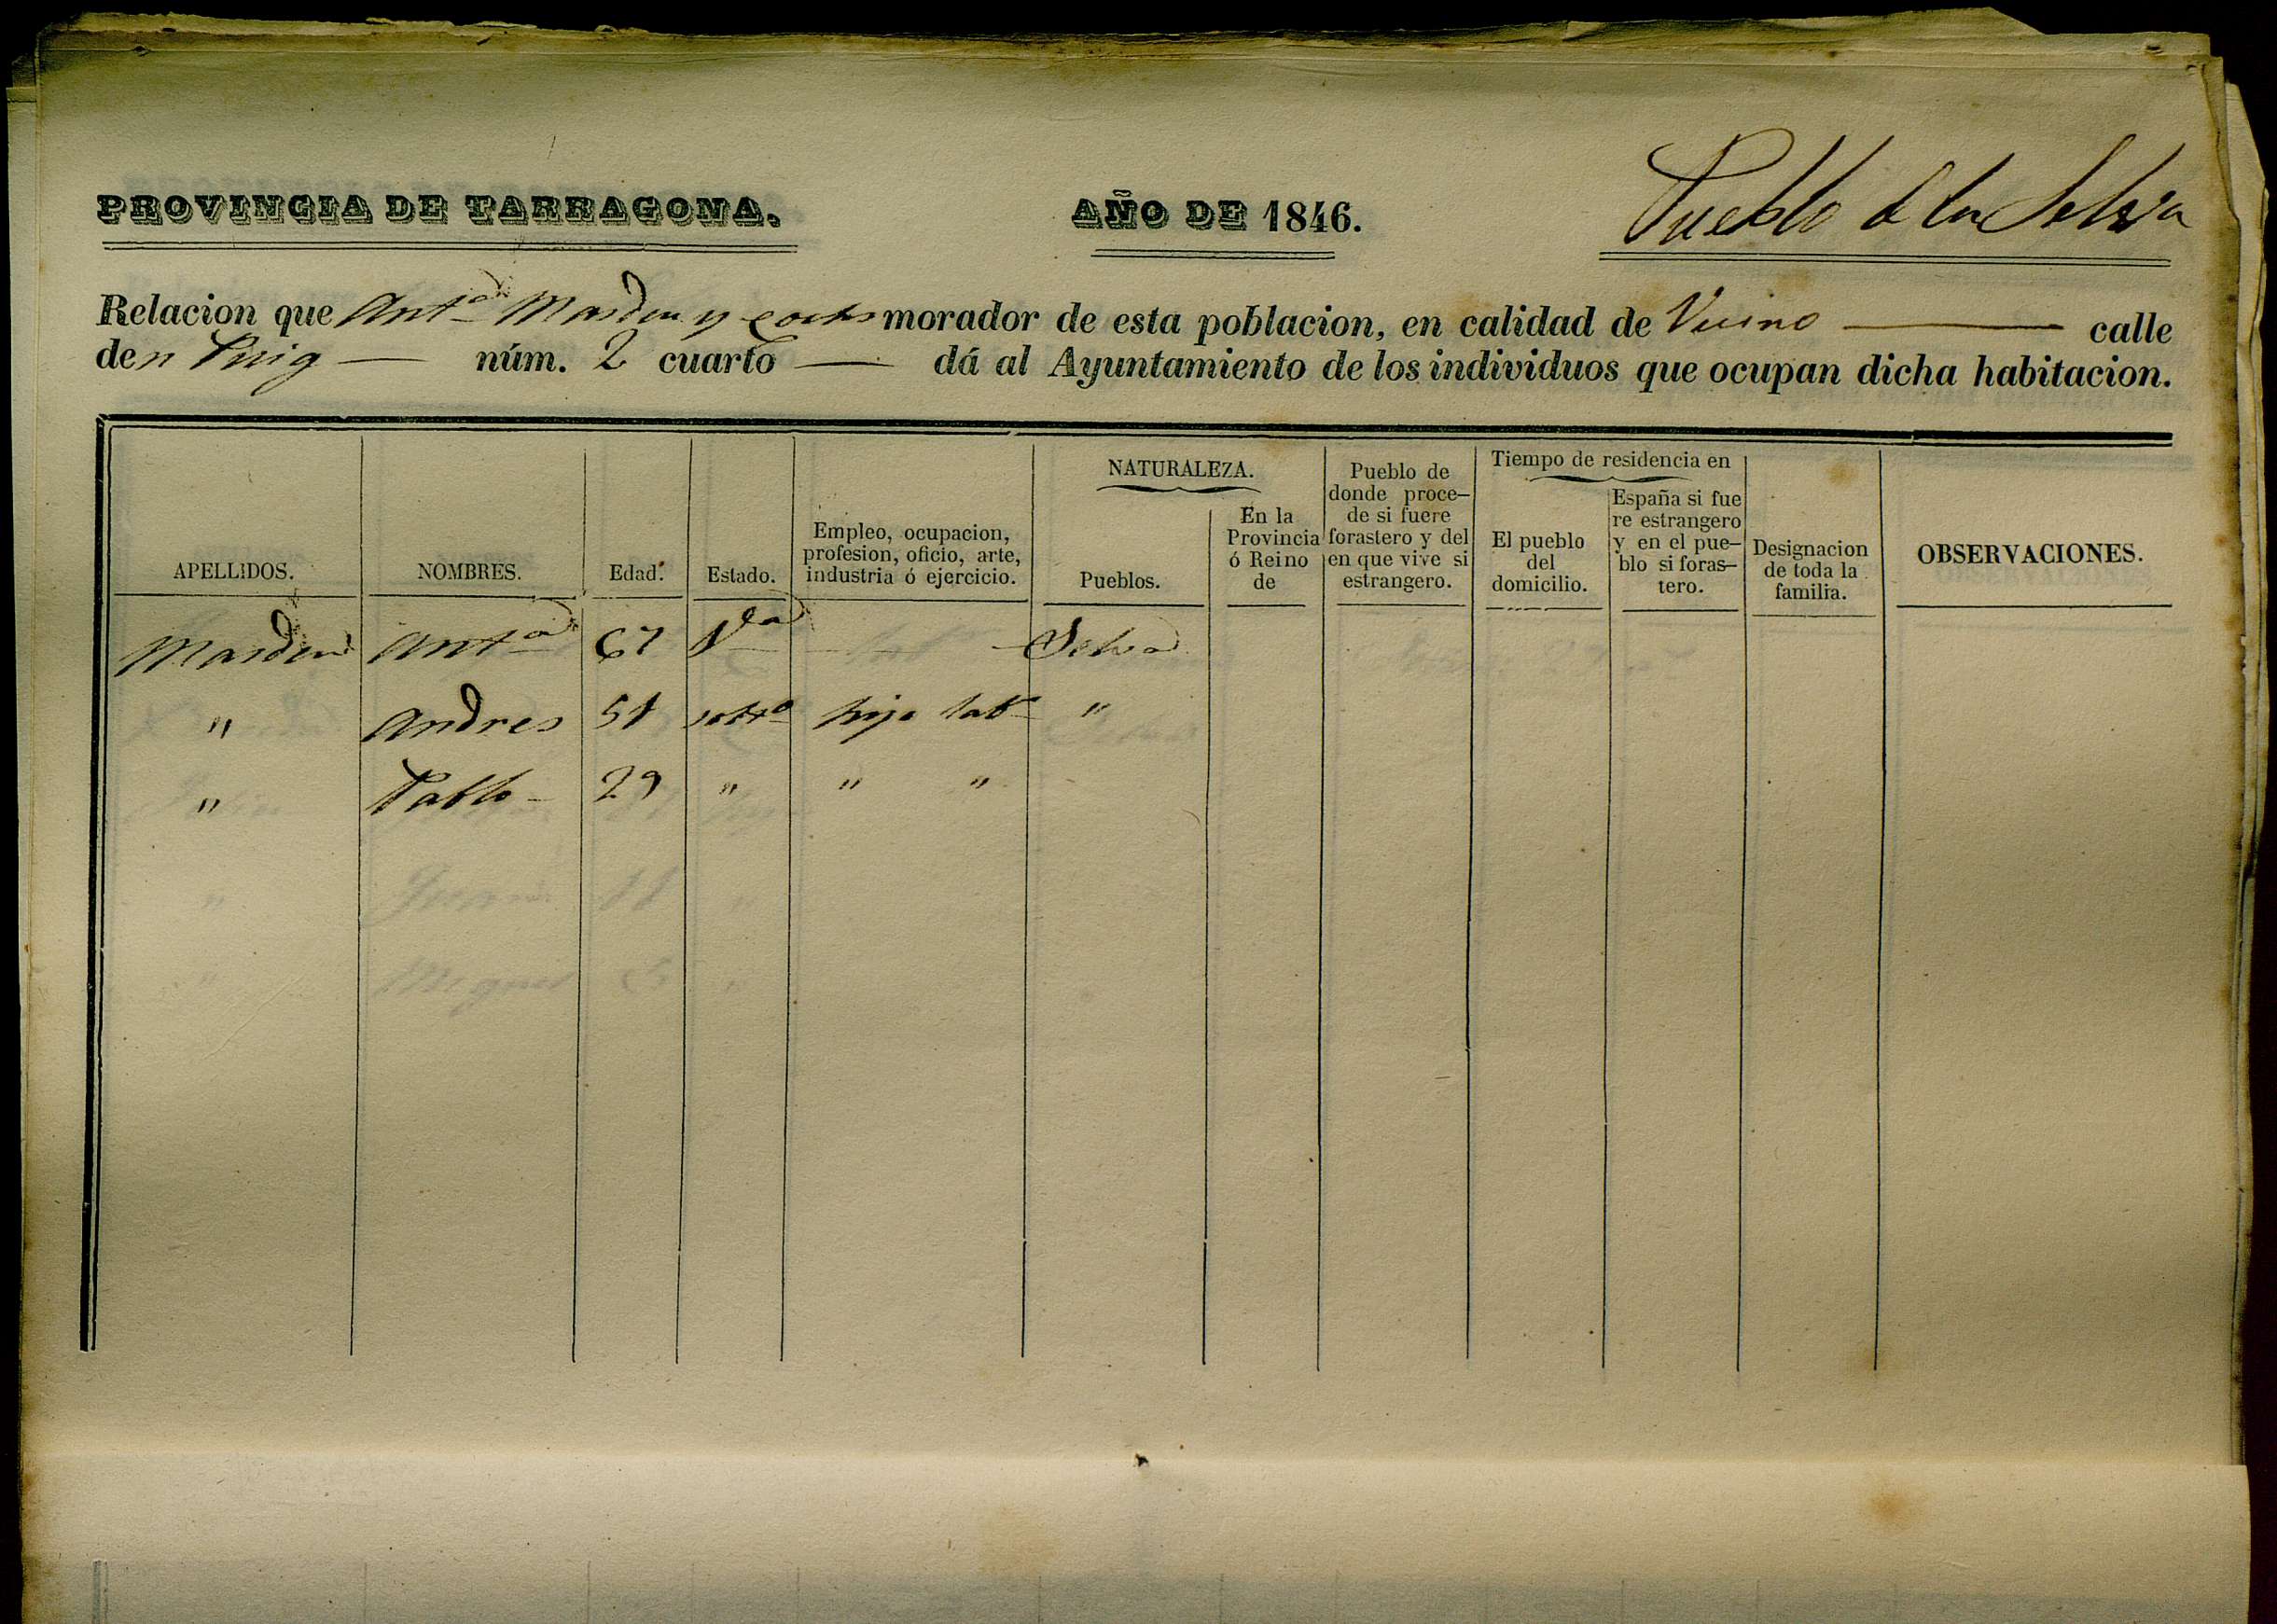 PROVINCIA DE TARRAGONA.
AÑO DE 1846.
Pueblo de la Selva
Relacion que Ant.ª Masdeu y morador de esta poblacion, en calidad de Vecino — calle
den Puig — núm. 2 cuarto — dá al Ayuntamiento de los individuos que ocupan dicha habitacion.
APELLIDOS.
NOMBRES.
Edad.
Estado.
Empleo, ocupacion,
profesion, oficio, arte,
industria ó ejercicio.
NATURALEZA.
Pueblos.
En la
Provincia
ó Reino
de
Pueblo de
donde proce–
de si fuere
forastero y del
en que vive si
estrangero.
Tiempo de residencia en
El pueblo
del
domicilio.
España si fue
re estrangero
y en el pue–
blo si foras–
tero.
Designacion
de toda la
familia.
OBSERVACIONES.
Masdeu Ant.ª 67 V.da — Selva
" Andres 51 solt.o hijo lab.r "
" Pablo 29 " " "